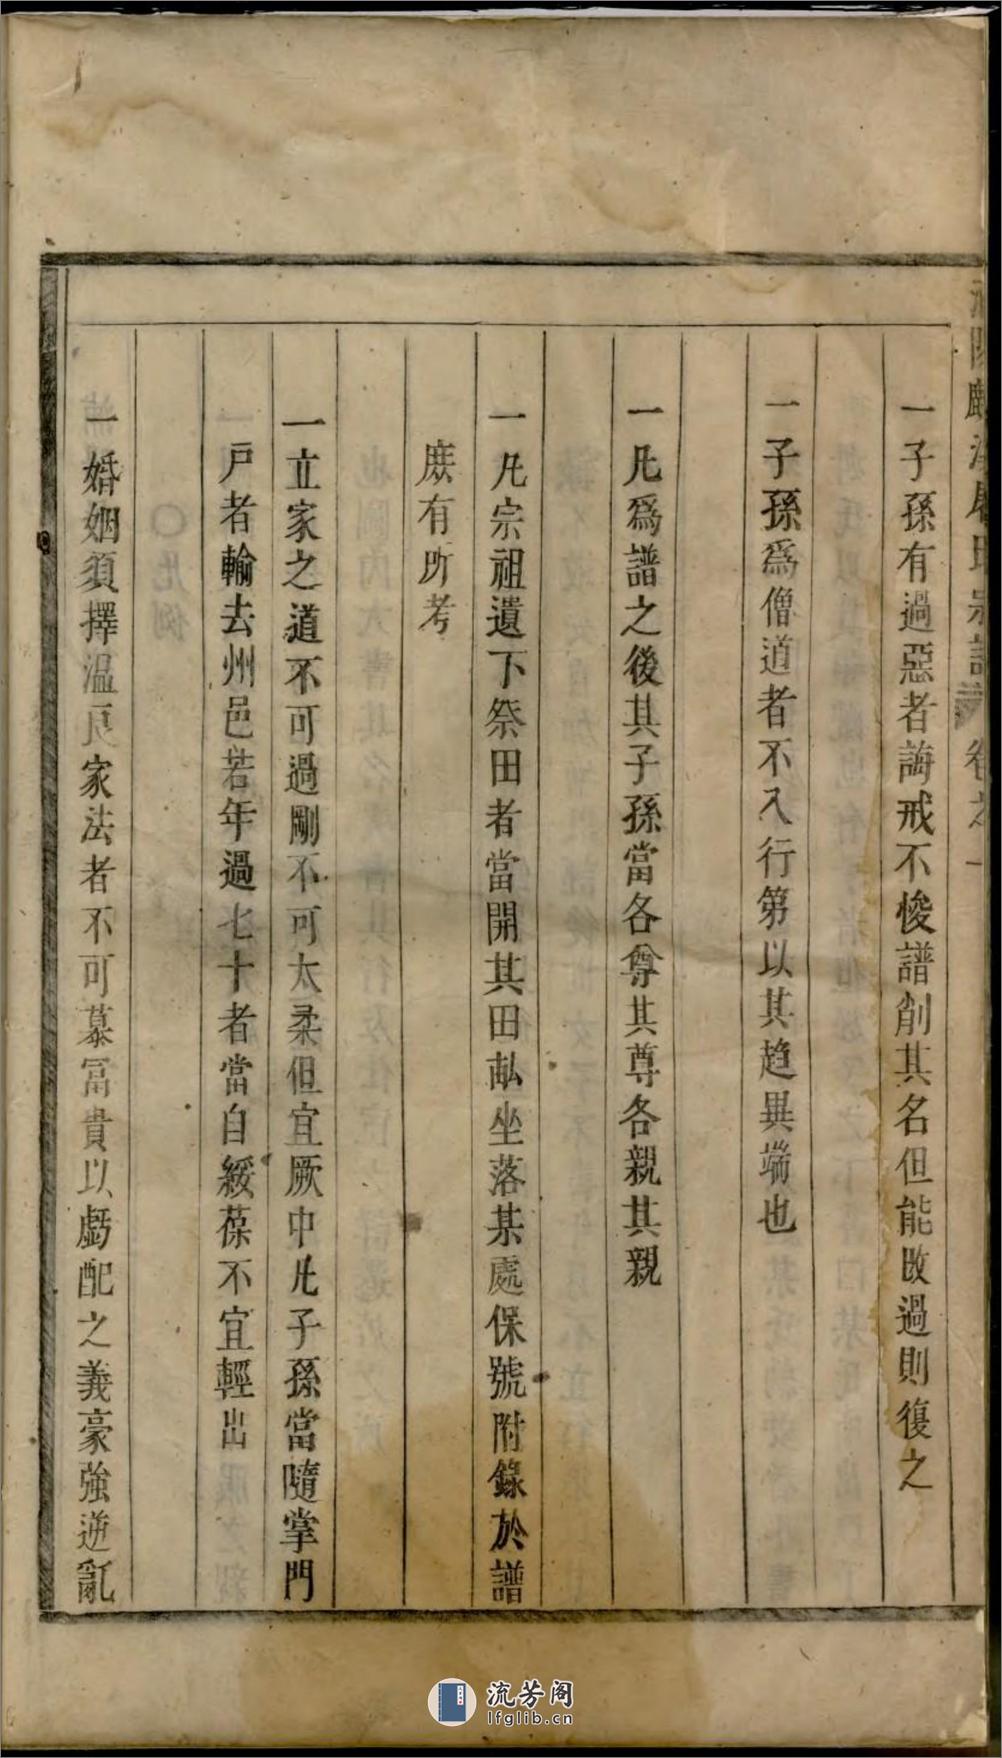 一子孫有過惡者誨戒不悛譜削其名但能改過則復之
一子孫爲僧道者不入行第以其趋異端也
一凡爲譜之後其子孫當各尊其尊各親其親
一凡宗祖遺下祭田者當開其田畝坐落某處保號附錄於譜
庶有所考
一立家之道不可過剛不可太柔但宜厥中凡子孫當隨掌門
户者輸去州邑若年過七十者當自綏葆不宜輕出
一婚姻須擇温良家法者不可慕冨貴以虧配之義豪強逆亂
卷之一
流芳阁
lfglib.cn